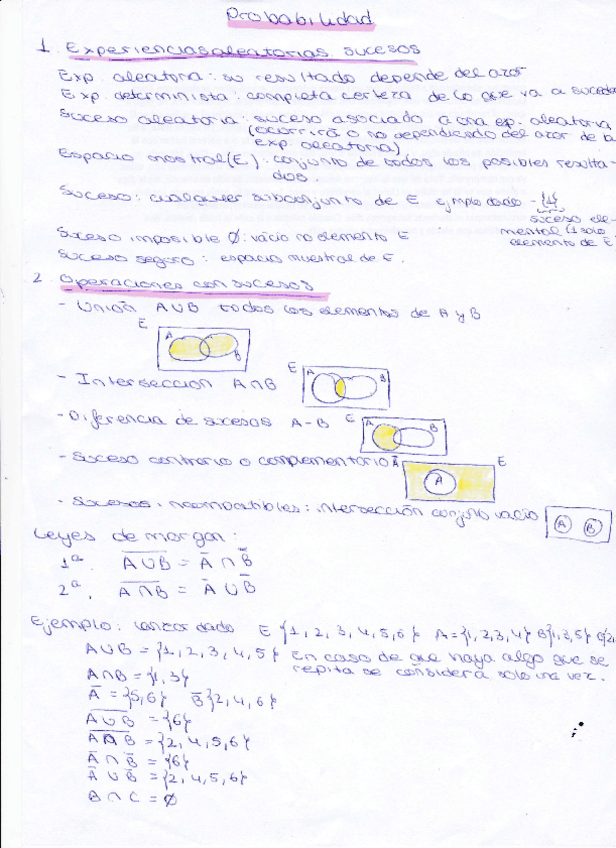 Probabilidad
1. Experiencias aleatorias. sucesos
Exp. aleatoria: su resultado depende del azar
Exp. determinista: completa certeza de lo que va a suceder
Suceso aleatoria: suceso asociado a una exp. aleatoria
(ocurrirá o no dependiendo del azar de la
exp. aleatoria)
Espacio mostral (E): conjunto de todos los posibles resulta-
dos.
Suceso: cualquier subconjunto de E ejmplo dado - {1}
suceso ele-
mental (1 solo
elemento de E
Suceso imposible Ø: vácio no elemento E
Suceso seguro: espacio muestral de E.
2 Operaciones con sucesos
- Unión A∪B todos los elementos de A y B
E
A
B
- Intersección A∩B
E
A
B
- Diferencia de sucesos A-B
E
A
B
- Suceso contrario o complementario Ā
E
A
- Sucesos incompatibles: intersección conjunto vacío
A
B
Leyes de morgan:
1ª. A̅∪̅B̅ = Ā ∩ B̅
2ª. A̅∩̅B̅ = Ā ∪ B̅
Ejemplo: lanzar dado E {1, 2, 3, 4, 5, 6} A={1,2,3,4} B{1,3,5} C{2,
A∪B = {1, 2, 3, 4, 5} En caso de que haya algo que se
repita se considera solo una vez.
A∩B = {1, 3}
Ā = {5,6} B̅ {2, 4, 6}
A̅∪̅B̅ = {6}
A̅∩̅B̅ = {2, 4, 5, 6}
Ā ∩ B̅ = {6}
Ā ∪ B̅ = {2, 4, 5, 6}
B ∩ C = Ø